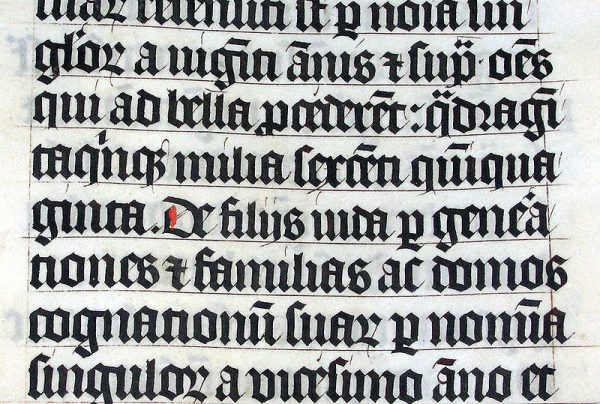 suaꝝ recensiti sūt ꝑ noīa sin
gl'oꝝ a uigīti ānis ⁊ sup̄· oēs
qui ad bella ꝓcederēt: qͣdragī
taqͥnqꝫ milia sexcēti qīnqua
ginta. De filijs iuda ꝑ gene͛a
tiones ⁊ familias ac domos
cognationū suaꝝ ꝑ nomīa
singuloꝝ a vicesimo āno et